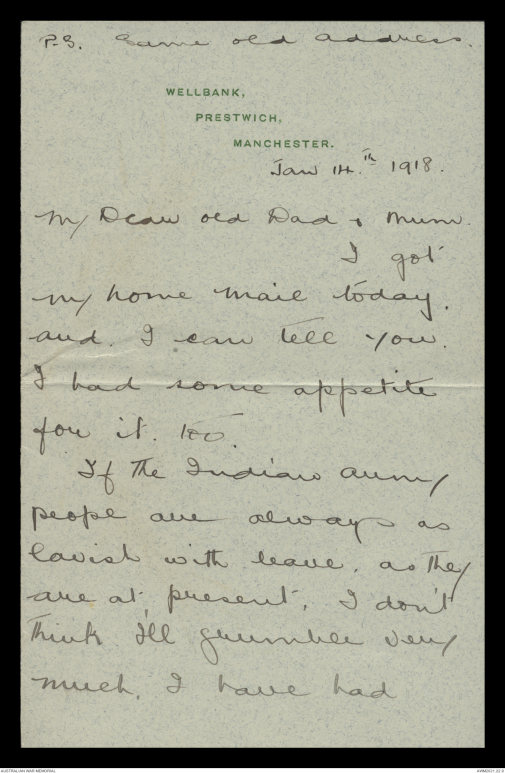 P.S. Same old address.
WELLBANK,
PRESTWICH,
MANCHESTER.
Jan 14.th 1918.
My Dear old Dad & Mum.
I got
my home mail today.
and. I can tell you.
I had some appetite
for it. too.
If the Indian army
people are always as
lavish with leave. as they
are at present, I don't
think I'll grumble very
much. I have had
AUSTRALIAN WAR MEMORIAL